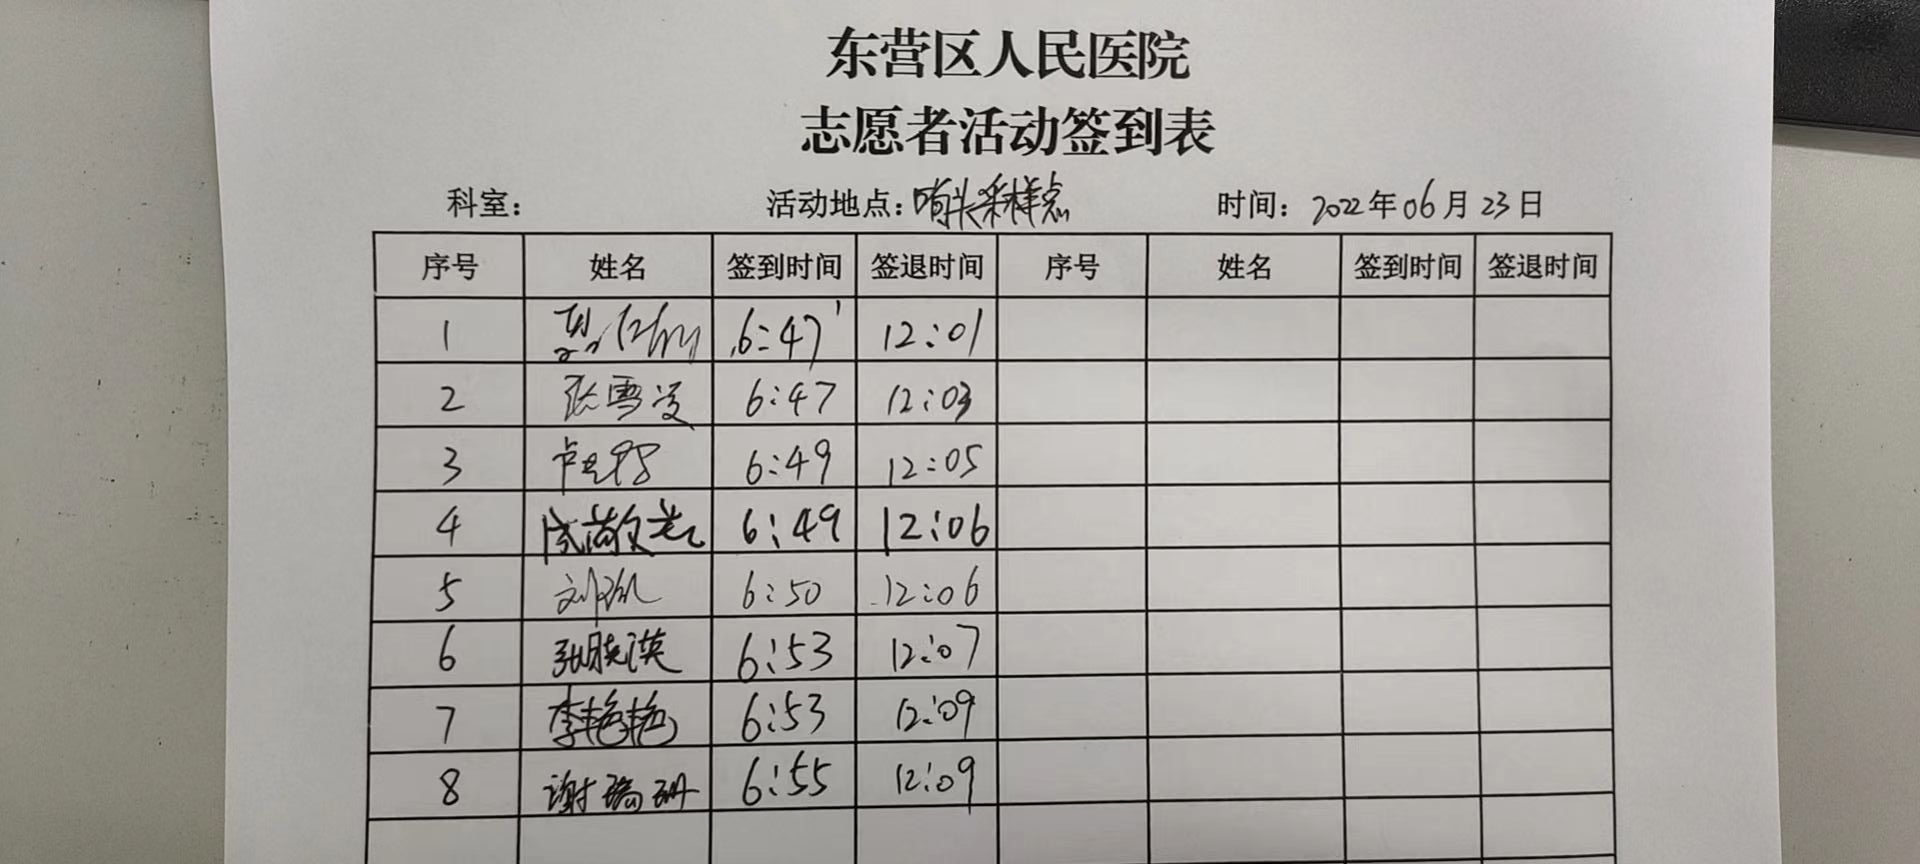 东营区人民医院
志愿者活动签到表
科室： 活动地点：哨头采样点 时间：2022年06月23日
序号 姓名 签到时间 签退时间 序号 姓名 签到时间 签退时间
1 6:47 12:01
2 张雪凌 6:47 12:03
3 6:49 12:05
4 6:49 12:06
5 6:50 12:06
6 张晓英 6:53 12:07
7 李艳艳 6:53 12:09
8 谢瑞珊 6:55 12:09